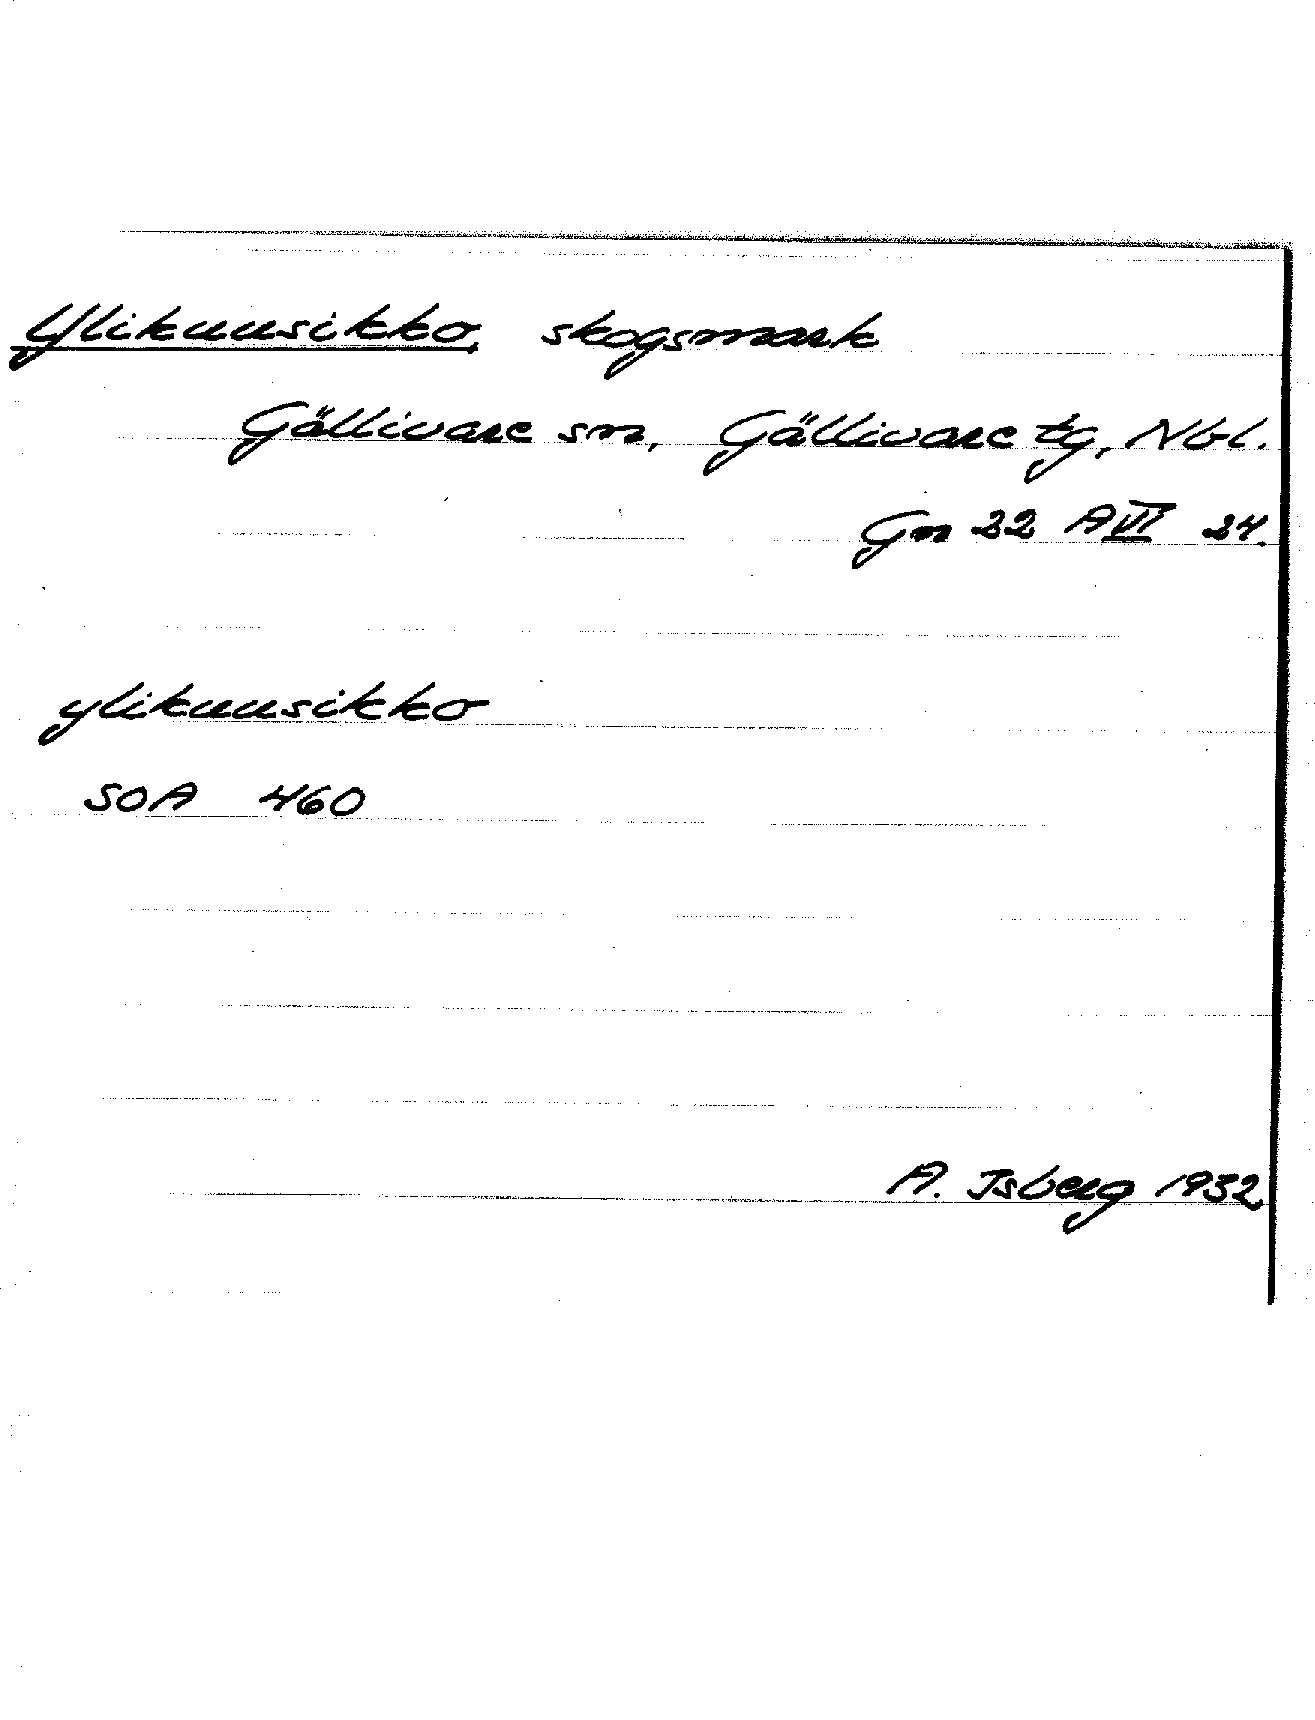 Ylikuusikko, skogsmark
Gällivare sn, Gällivare tg, Nbl.
Gn 22 A VI 24.
ylikuusikko
SOA 460
A. Isberg 1932